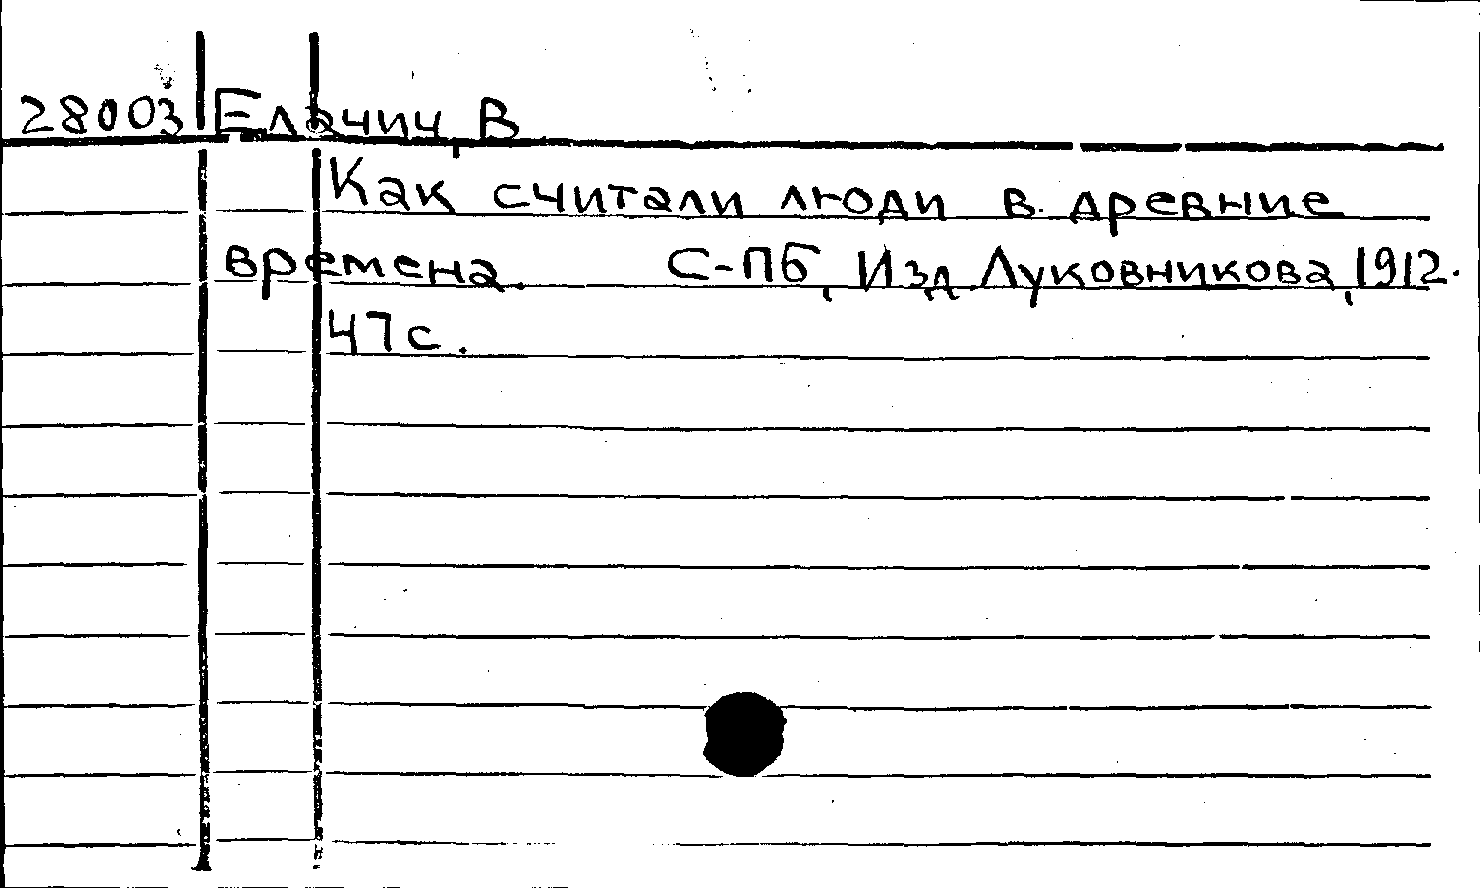 28003 Елачич, В
Как считали люди в древние
времена. С-Пб, Изд. Луковникова, 1912.
47с.